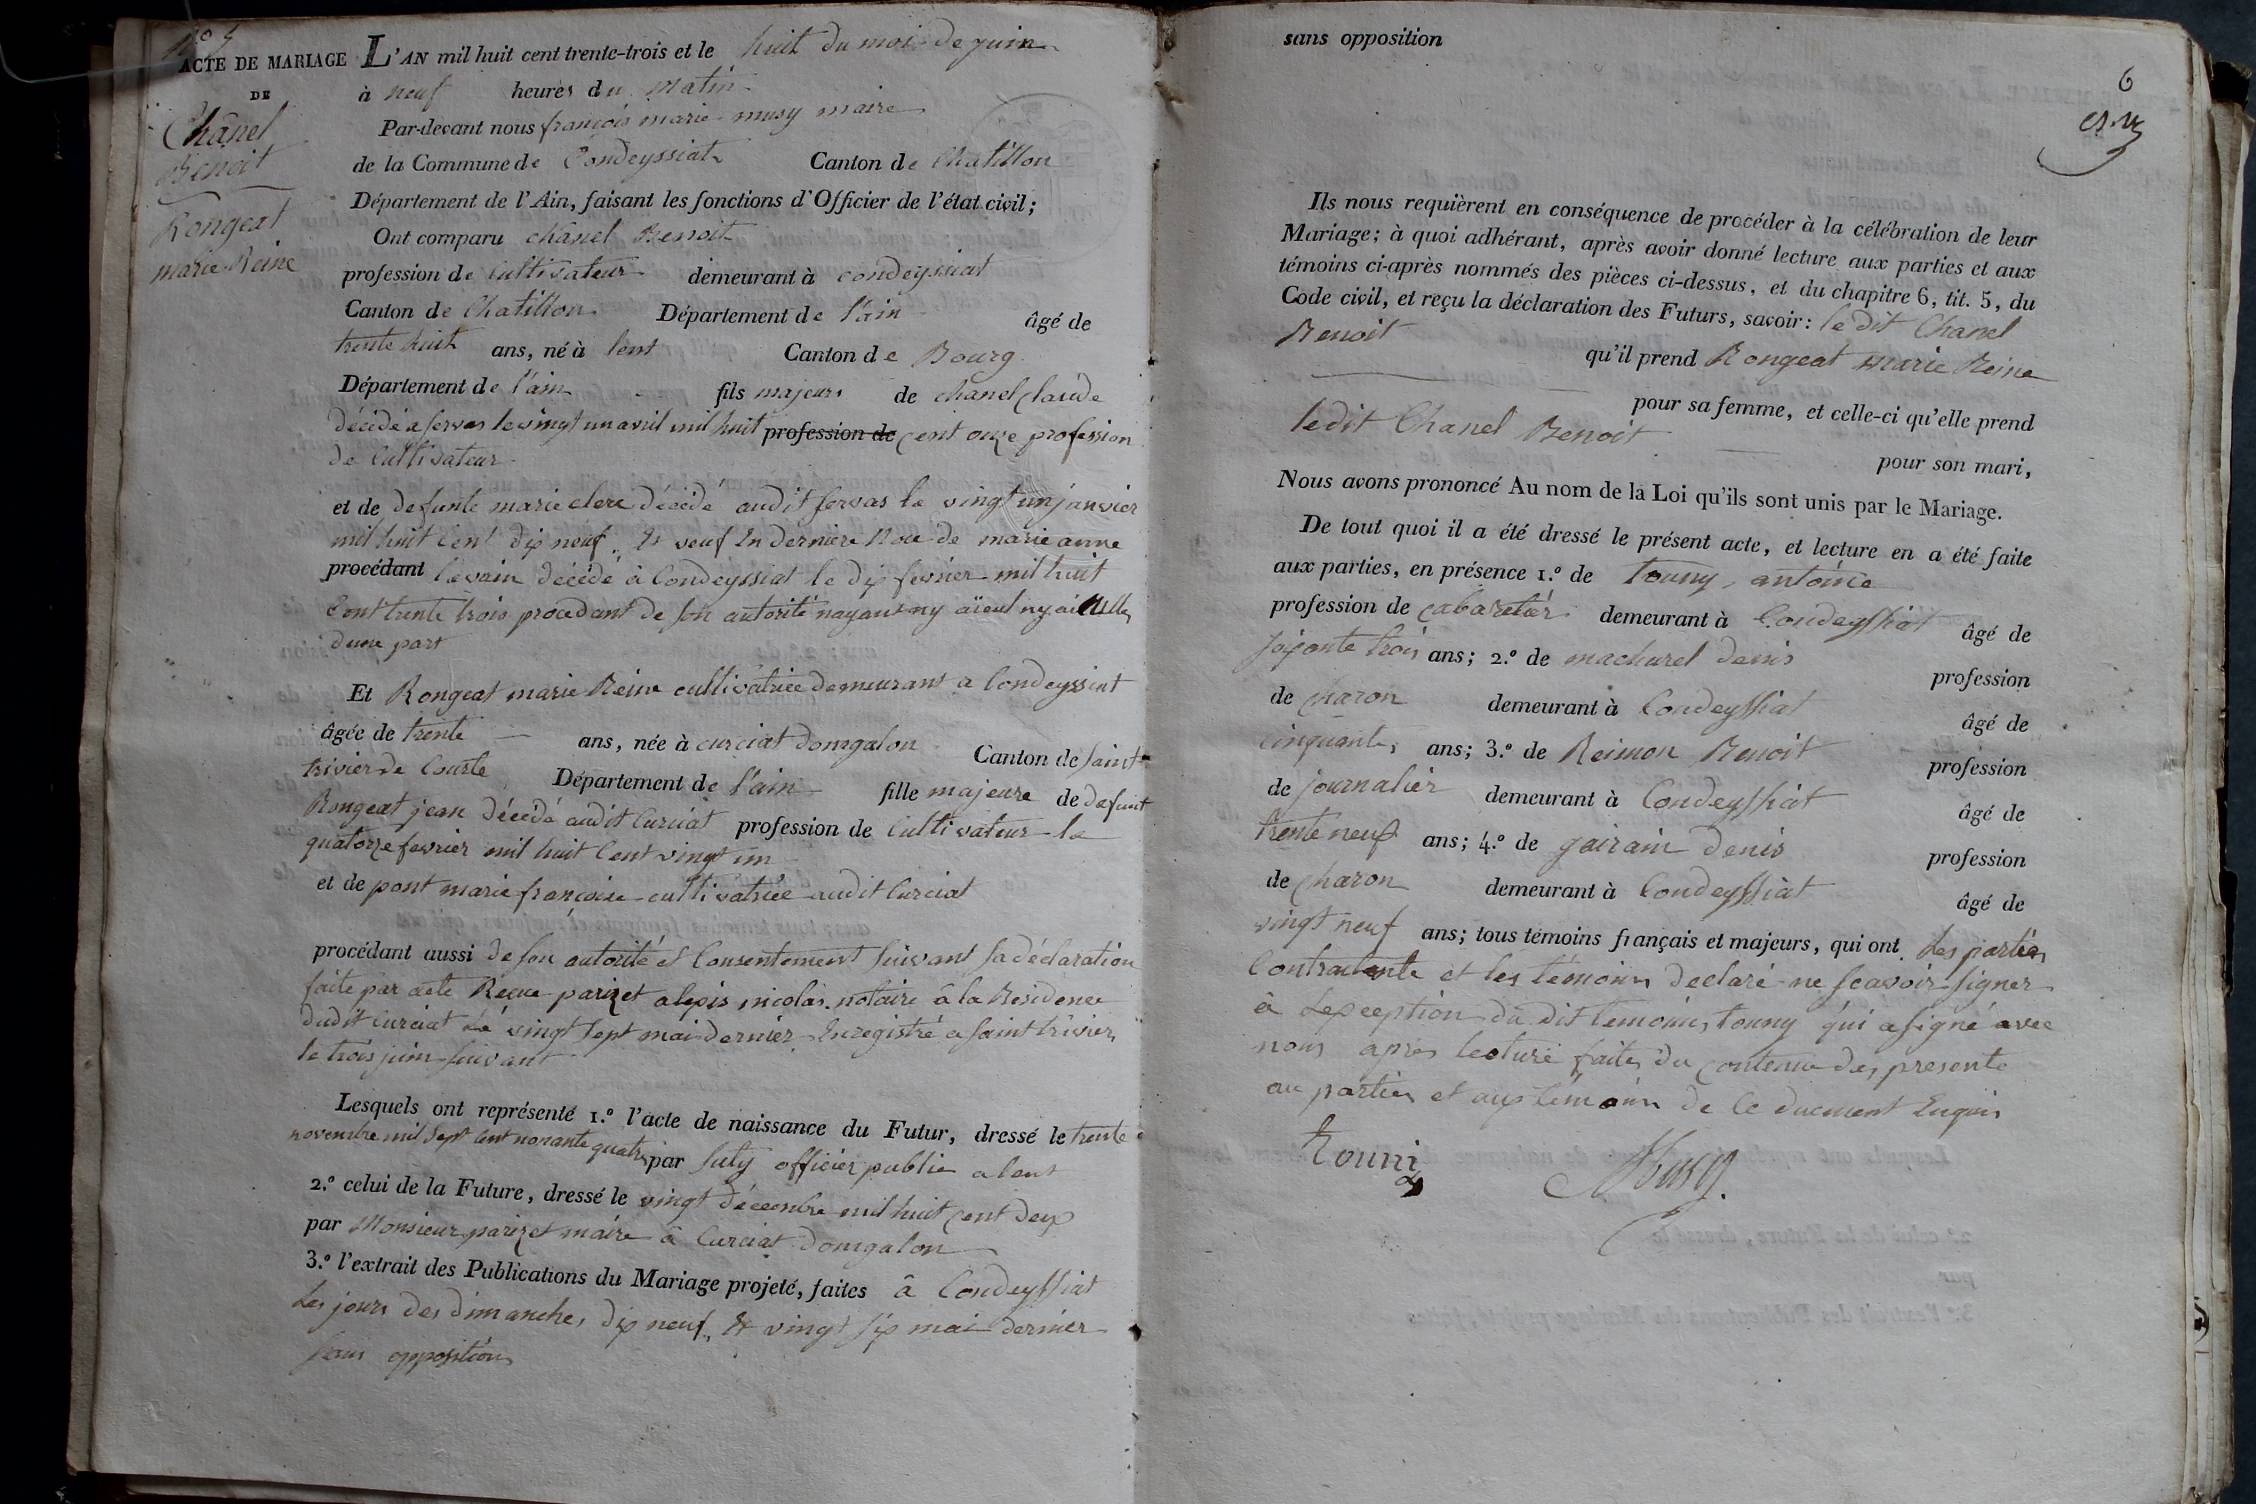 N.o 5
ACTE DE MARIAGE
DE
Chânel
Benoit
Rongeat
marie Reine
L'AN mil huit cent trente-trois et le huit du moi de juin
à neuf heures du matin
Par-devant nous françois marie musy maire
de la Commune de Condeyssiat Canton de Chatillon
Département de l'Ain, faisant les fonctions d'Officier de l'état civil;
Ont comparu chânel Benoit
profession de cultivateur demeurant à condeyssiat
Canton de Chatillon Département de l'ain âgé de
trente huit ans, né à lent Canton de Bourg
Département de l'ain fils majeur de chanel Claude
décédé a servas le vingt un avril mil huit profession de cent onze profession
de Cultivateur
et de defunte marie clerc décédé audit servas le vingt un janvier
mil huit Cent dix neuf. Et veuf En dernière Noce de marie anne
procédant levrain décédé à Condeyssiat le dix fevrier mil huit
Cent trente trois procedant de son autorité nayant ny aïeul ny aïeulle
dune part
Et Rongeat marie Reine cultivatrice demeurant a Condeyssiat
âgée de trente ans, née à curciat dongalon Canton de saint
trivier de Courte Département de l'ain fille majeure de defunt
Rongeat jean décédé audit Curciat profession de Cultivateur le
quatorze fevrier mil huit Cent vingt un
et de pont marie françoise cultivatrice audit Curciat
procédant aussi de son autorité et Consentement suivant sa déclaration
faite par acte Reçue parizet alexis nicolas notaire â la Residence
dudit Curciat Le vingt sept mai dernier Enregistré a saint trivier
le trois juin suivant
Lesquels ont représenté 1.º l'acte de naissance du Futur, dressé le trente
novembre mil sept cent nonante quatre par suty officier public a lent
2.º celui de la Future, dressé le vingt décembre mil huit cent deux
par Monsieur parizet maire â Curciat dongalon
3.º l'extrait des Publications du Mariage projeté, faites â Condeyssiat
Les jours des dimanches dix neuf, Et vingt six mai dernier
sans opposition
sans opposition
6
Ils nous requièrent en conséquence de procéder à la célébration de leur
Mariage; à quoi adhérant, après avoir donné lecture aux parties et aux
témoins ci-après nommés des pièces ci-dessus, et du chapitre 6, tit. 5, du
Code civil, et reçu la déclaration des Futurs, savoir: le dit Chanel
Benoit qu'il prend Rongeat marie Reine
pour sa femme, et celle-ci qu'elle prend
ledit Chanel Benoit pour son mari,
Nous avons prononcé Au nom de la Loi qu'ils sont unis par le Mariage.
De tout quoi il a été dressé le présent acte, et lecture en a été faite
aux parties, en présence 1.º de touny antoine
profession de cabaretier demeurant à Condeyssiat âgé de
soixante trois ans; 2.º de machurel denis profession
de charon demeurant à Condeyssiat âgé de
cinquante ans; 3.º de Reimon Benoit profession
de journalier demeurant à Condeyssiat âgé de
trente neuf ans; 4.º de gairain denis profession
de charon demeurant à Condeyssiat âgé de
vingt neuf ans; tous témoins français et majeurs, qui ont Les parties
Contractante et les témoins declaré ne scavoir signer
â Lexception du dit temoins touny qui a signé avec
nous après lecture faites du contenu des presente
au parties et aux témoins de Ce ducment Enquis
touni
Musy